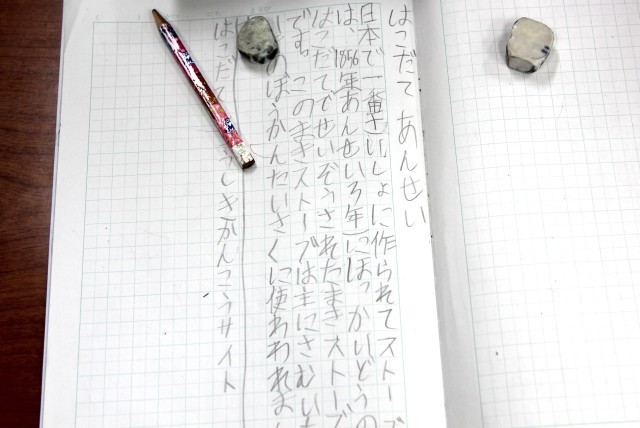 はこだて あんせい
日本で一番さいしょに作られてストーブ
は、1856年あんせい3年)にほっかいどうの
はこだてでせいぞうされたまきストーブ
です。このまきストーブは主にさむい
のぼうかんたいさくに使わわれまし
はこだて しきかんこうサイト